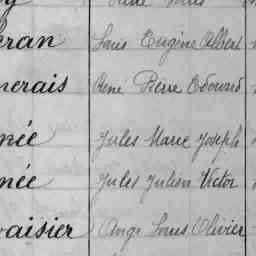 eran Louis Eugène Albert
nerais René Pierre Edouard
née Jules Marie Joseph
née Jules Julien Victor
vaisier Ange Louis Olivier